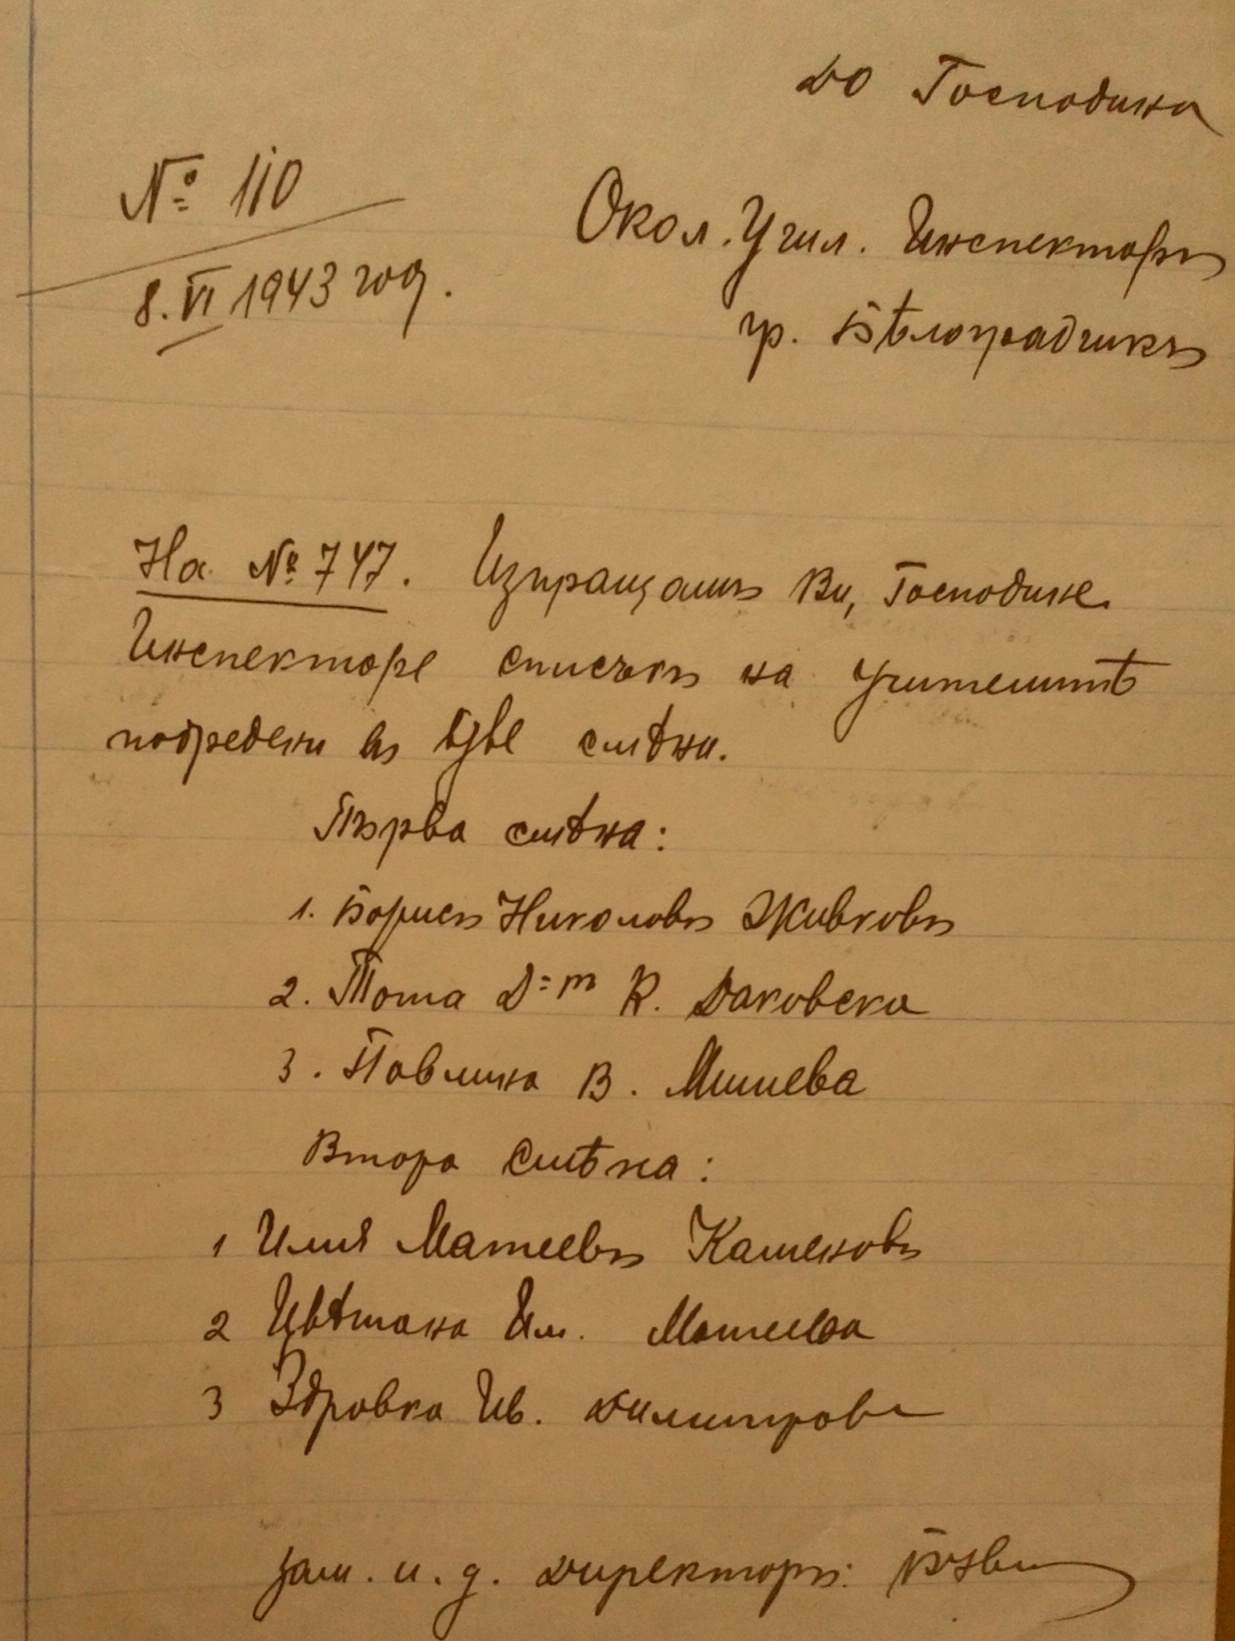 До Господина
№ 110
Окол. Учил. Инспекторъ
8. VI 1943 год.
гр. Бѣлоградчикъ
На № 747. Изпращамъ Ви, Господине
Инспекторе списъкъ на учителитѣ
подредени въ две смѣни.
Първа смѣна:
1. Борисъ Николовъ Живковъ
2. Тота Д-ръ К. Даковска
3. Павлина В. Мишева
Втора смѣна:
1 Илия Матеевъ Каменовъ
2 Цвѣтана Ил. Матеева
3 Здравка Ив. Димитрова
зам. и. д. Директоръ: